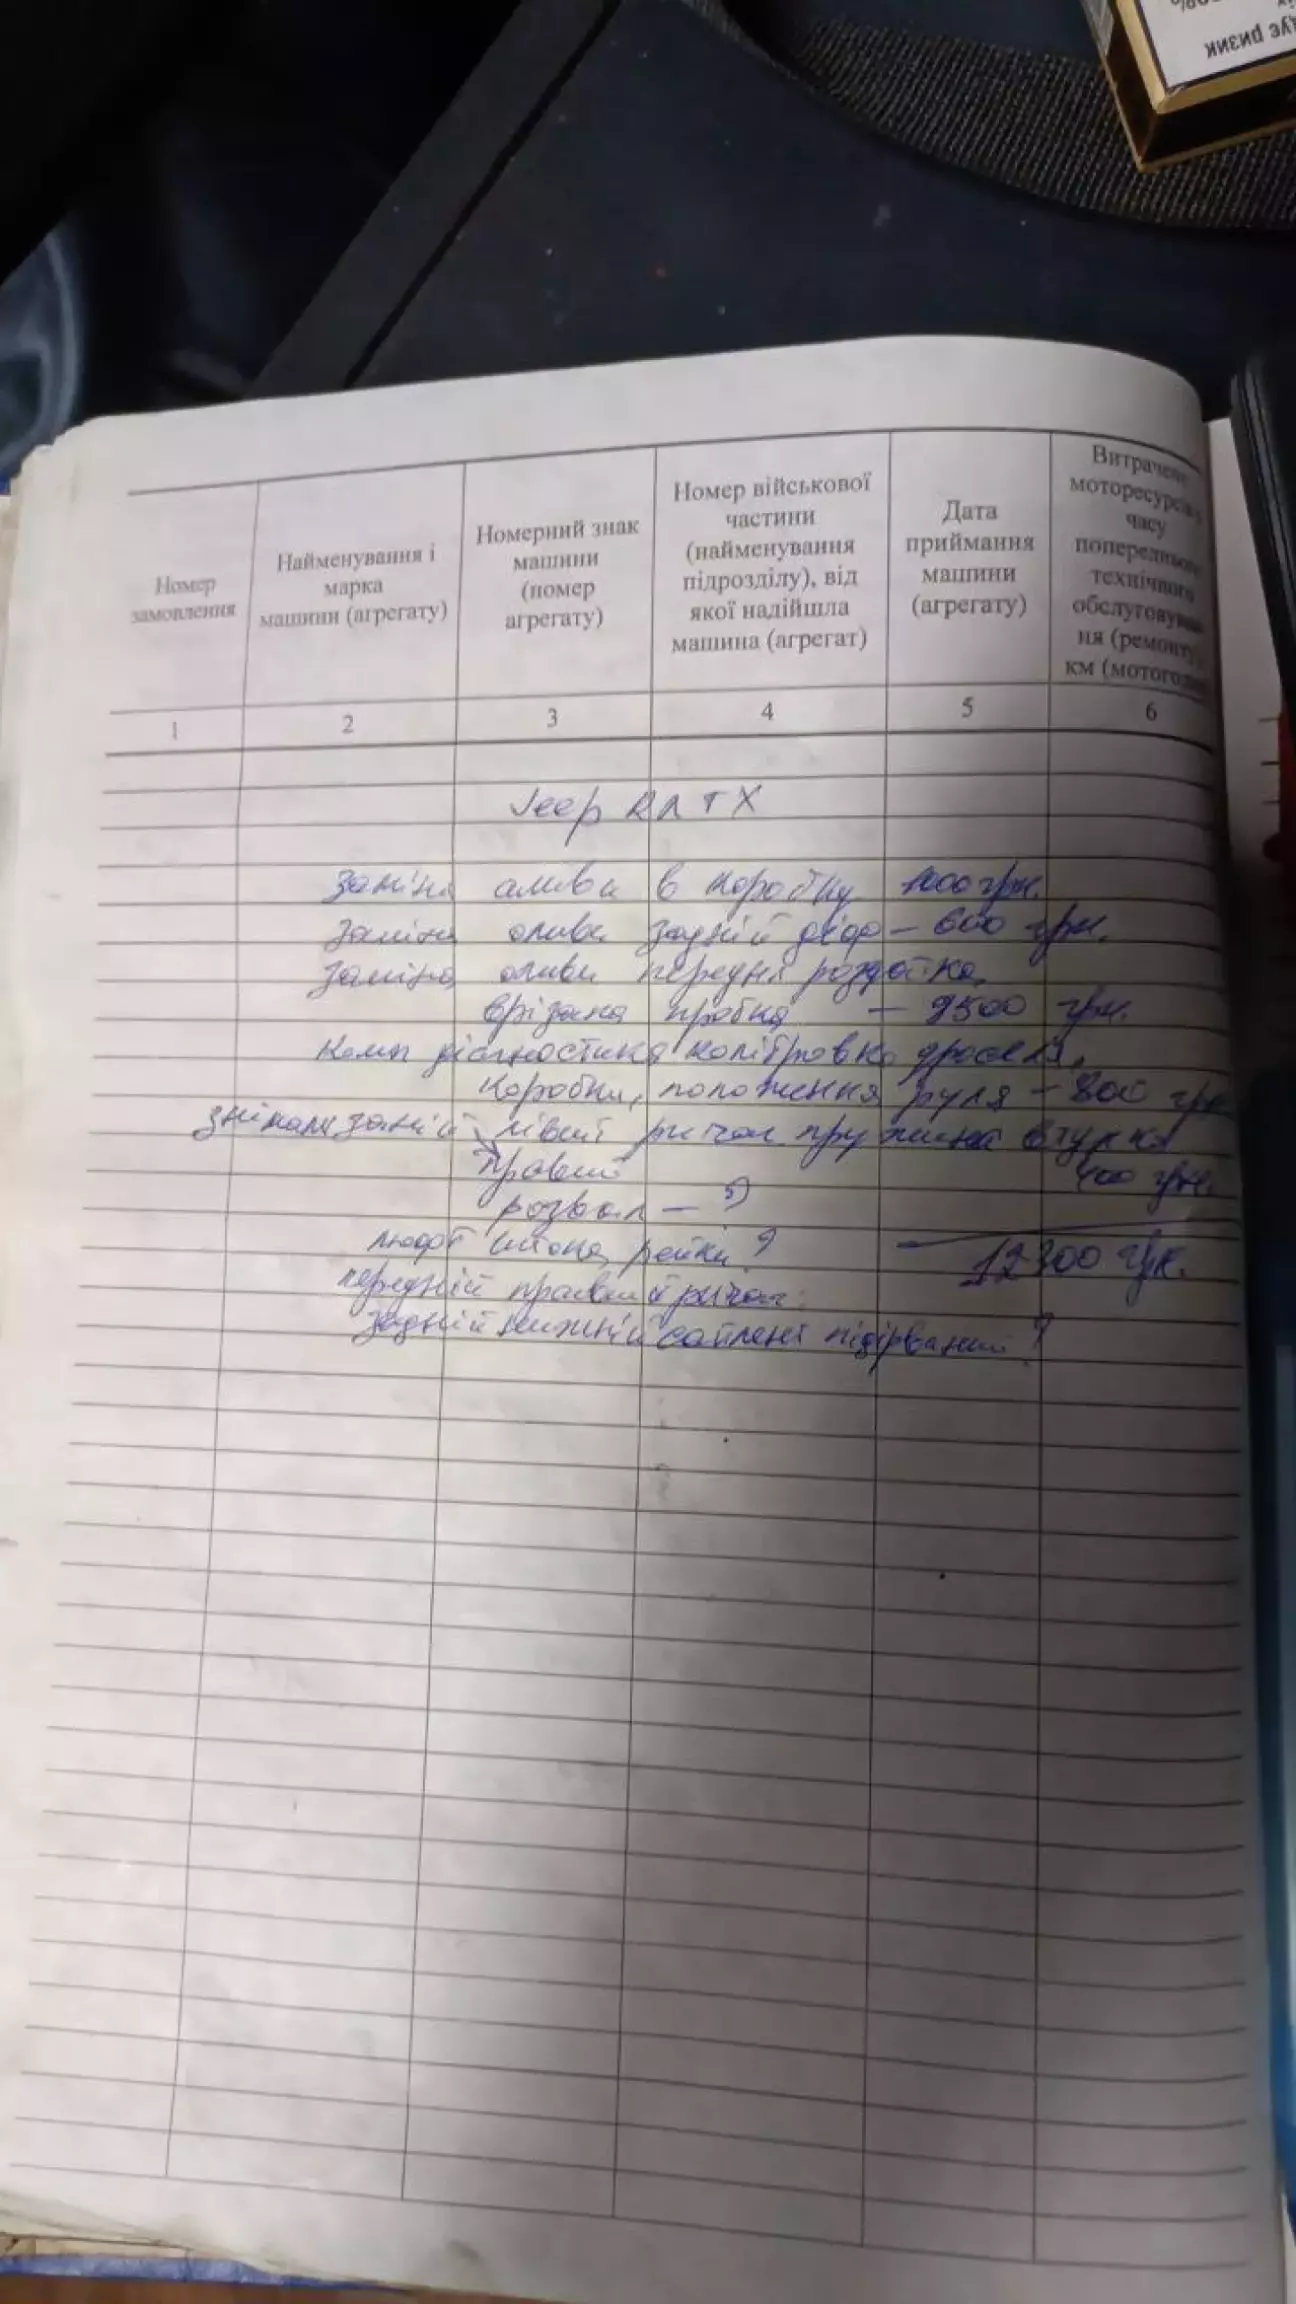 ує ризик
Номер замовлення
Найменування і марка машини (агрегату)
Номерний знак машини (номер агрегату)
Номер військової частини (найменування підрозділу), від якої надійшла машина (агрегат)
Дата приймання машини (агрегату)
Витрачено моторесурсів з часу попереднього технічного обслуговування (ремонту), км (мотогодин
1 2 3 4 5 6
Jeep
Заміна оливи в коробку 1000 грн.
Заміна оливи задній діфр – 600 грн.
Заміна оливи передня роздатка,
врізана пробка – 9500 грн.
Комп діагностика калібровка дроселя,
коробки, положення руля – 800 грн
знімали задній лівий ричаг пружина втулка
правий 400 грн.
розвал – ?
люфт штока рейки ?
12300 грн.
передній правий ричаг
задній нижній сайлент підірваний ?